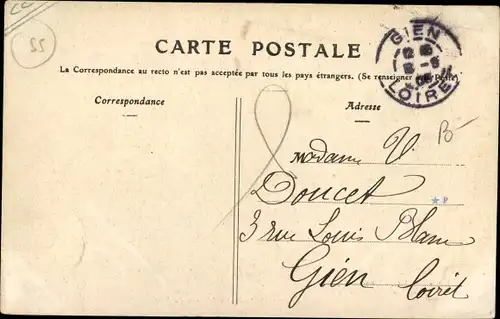 CC
55
GIEN
LOIRET
CARTE POSTALE
La Correspondance au recto n'est pas acceptée par tous les pays étrangers. (Se renseigner à la Poste)
Correspondance
Adresse
B-
Madame V
Doucet
* P
3 rue Louis Blanc
Gien
Loiret